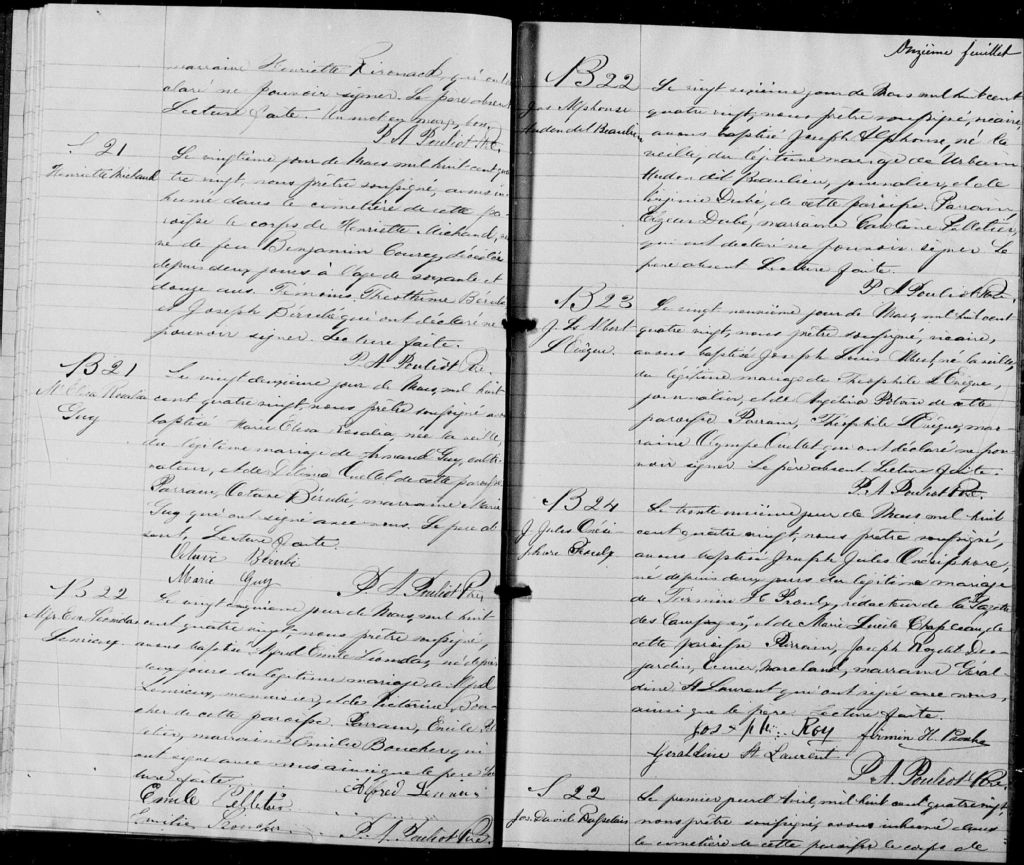 marraine Henriette qui ont dé
claré ne pouvoir signer. Le père absent
Lecture faite. Un mot en marge, bon.
P. A. Pouliot Ptre.
S 21
Henriette Michaud
Le vingtième jour de Mars mil huit cent qua
tre vingt, nous prêtre soussigné, avons in
humé dans le cimetière de cette pa
roisse le corps de Henriette Michaud,
de feu Benjamin Courcy, décédée
depuis deux jours à l'age de soixante et
douze ans. Témoins, Théotime Bérubé
et Joseph Bérubé qui ont déclaré ne
pouvoir signer. Lecture faite.
P. A. Pouliot Ptre.
B 21
M. Elisa Rosalia
Guy
Le vingt deuxième jour de Mars, mil huit
cent quatre vingt, nous prêtre soussigné avons
baptisé Marie Elisa Rosalia, née la veille,
du légitime mariage de Armand Guy, culti
vateur, et de Délima Ouellet de cette paroisse
Parrain, Octave Bérubé, marraine Marie
Guy qui ont signé avec nous. Le père ab
sent, Lecture faite.
Octave Bérubé
Marie Guy
P. A. Pouliot Ptre
B 22
Alfr. Em. Léonidas
Lemieux
Le vingt cinquième jour de Mars, mil huit
cent quatre vingt, nous prêtre soussigné,
avons baptisé Alfred Emile Léonidas, né depuis
deux jours du légitime mariage de Alfred
Lemieux, menuisier, et de Victorine Bou
cher de cette paroisse. Parrain, Emile Pel
letier, marraine Emilie Boucher qui
ont signé avec nous ainsi que le père Lec
ture faite.
Emile Pelletier
Alfred Lemieux
Emilie Boucher
P. A. Pouliot Ptre.
Onzième feuillet
B 22
Jos. Alphonse
Hudon dit Beaulieu
Le vingt sixième jour de Mars mil huit cent
quatre vingt, nous prêtre soussigné, vicaire,
avons baptisé Joseph Alphonse, né la
veille, du légitime mariage de Urbain
Hudon dit Beaulieu, journalier, et de
Virginie Dubé, de cette paroisse. Parrain
Elzéar Dubé, marraine Caroline Pelletier,
qui ont déclaré ne pouvoir signer Le
père absent Lecture faite.
P. A. Pouliot Ptre.
B 23
J. Ls Albert
L'Evêque
Le vingt neuvième jour de Mars, mil huit cent
quatre vingt, nous prêtre soussigné, vicaire,
avons baptisé Joseph Louis Albert, né la veille,
du légitime mariage de Théophile L'Evêque,
journalier, et de Angelina de cette
paroisse Parrain, Théophile L'Evêque, mar
raine Olympe Ouellet qui ont déclaré ne pou
voir signer Le père absent. Lecture faite.
P. A. Pouliot Ptre.
B 24
J. Jules Onési
phore Proulx
Le trente unième jour de Mars mil huit
cent quatre vingt, nous prêtre soussigné,
avons baptisé Joseph Jules Onésiphore,
né depuis deux jours du légitime mariage
de Firmin H. Proulx, rédacteur de la Gazette
des Campagnes, et de Marie Lucile Chapleau, de
cette paroisse Parrain, Joseph Roy dit Des
jardins, marchand, marraine Géral
dine St Laurent qui ont signé avec nous,
ainsi que le père. Lecture faite.
Jos Roy
Firmin H. Proulx
Geraldine St Laurent
P. A. Pouliot Ptre.
S 22
Jos. David
Le premier jour d'Avril, mil huit cent quatre vingt,
nous prêtre soussigné, avons inhumé dans
le cimetière de cette paroisse le corps de